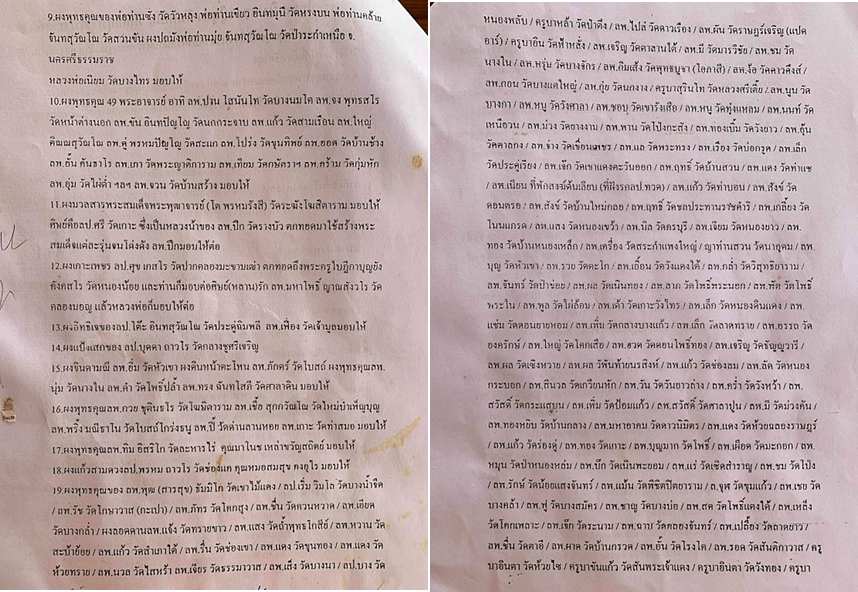 9.ผงพุทธคุณของพ่อท่านซัง วัดวัวหลุง พ่อท่านเขียว อินทมุนี วัดหรงบน พ่อท่านคล้าย
จันทสุวัณโณ วัดสวนขัน ผงปถมังพ่อท่านมุ่ย จันทสุวัณโณ วัดป่าระกำเหนือ จ.
นครศรีธรรมราช
หลวงพ่อเนียม วัดบางไทร มอบให้
10.ผงพุทธคุณ 49 พระอาจารย์ อาทิ ลพ.ปาน โสนันโท วัดบางนมโค ลพ.จง พุทธสโร
วัดหน้าต่างนอก ลพ.ขัน อินทปัญโญ วัดนกกระจาบ ลพ.แก้ว วัดสามเรือน ลพ.ใหญ่
ติณณสุวัณโณ ลพ.ดู่ พรหมปัญโญ วัดสะแก ลพ.โปร่ง วัดขุนทิพย์ ลพ.ออด วัดบ้านช้าง
ลพ.อั้น คันธาโร ลพ.เภา วัดพระญาติการาม ลพ.เทียม วัดกษัตราฯ ลพ.คร้าม วัดกุ่มหัก
ลพ.อุ่ม วัดไผ่ต่ำ ฯลฯ ลพ.จวน วัดบ้านสร้าง มอบให้
11.ผงมวลสารพระสมเด็จพระพุฒาจารย์ (โต พรหมรังสี) วัดระฆังโฆสิตาราม มอบให้
ศิษย์คือลป.ศรี วัดเกาะ ซึ่งเป็นหลวงน้าของ ลพ.ปึก วัดรางบัว ตกทอดมาใช้สร้างพระ
สมเด็จแต่ละรุ่นจนโด่งดัง ลพ.ปึกมอบให้ต่อ
12.ผงเกาะเพชร ลป.ศุข เกสโร วัดปากคลองมะขามเฒ่า ตกทอดถึงพระครูใบฎีกาบุญยัง
คังคสโร วัดหนองน้อย และท่านก็มอบต่อศิษย์(หลาน)รัก ลพ.มหาโพธิ์ ญาณสังวโร วัด
คลองมอญ แล้วหลวงพ่อก็มอบให้ต่อ
13.ผงอิทธิเจของลป.โต๊ะ อินทสุวัณโณ วัดประดู่ฉิมพลี ลพ.เฟื่อง วัดเจ้ามูลมอบให้
14.ผงแป้งเสกของ ลป.บุดดา ถาวโร วัดกลางชูศรีเจริญ
15.ผงจินดามณี ลพ.ยิ้ม วัดหัวเขา ผงดินหน้าตะโพน ลพ.ภักตร์ วัดโบสถ์ ผงพุทธคุณลพ.
นุ่ม วัดนางใน ลพ.คำ วัดโพธิ์ปล้ำ ลพ.ทรง ฉันทโสภี วัดศาลาดิน มอบให้
16.ผงพุทธคุณลพ.กวย ชุตินธโร วัดโฆสิตาราม ลพ.เชื้อ สุกกวัณโณ วัดใหม่บำเพ็ญบุญ
ลพ.พริ้ง มณีธาโน วัดโบสถ์โก่งธนู ลพ.ปี้ วัดด่านลานหอย ลพ.เกาะ วัดท่าสมอ มอบให้
17.ผงพุทธคุณลพ.ทิม อิสริโก วัดละหารไร่ คุณมาโนช เหล่าขวัญสถิตย์ มอบให้
18.ผงแก้วสามดวงลป.พรหม ถาวโร วัดช่องแค คุณหมอสมสุข คงอุไร มอบให้
19.ผงพุทธคุณของ ลพ.พุฒ (สารสุข) ธัมมิโก วัดเขาไม้แดง / ลป.เริ่ม วิมโล วัดบางน้ำจืด
/ลพ.รัช วัดโกมาวาส (กะเปา) / ลพ.ภัทร วัดโคกสูง / ลพ.ชื่น วัดควนหวาด / ลพ.เอียด
วัดบางกล่ำ / ผงลอดดานลพ.แจ้ง วัดทรายขาว / ลพ.แสง วัดล้ำพุทธโกสีย์ / ลพ.หวาน วัด
สะบ้าย้อย / ลพ.แก้ว วัดสำเภาใต้ / ลพ.รื่น วัดช่องเขา / ลพ.แดง วัดขุนทอง / ลพ.แดง วัด
ห้วยทราย / ลพ.นวล วัดไสหร้า ลพ.เจียร วัดธรรมาวาส / ลพ.เส็ง วัดบางนา / ลป.บาง วัด
หนองพลับ / ครูบาหล้า วัดป่าตึง / ลพ.ไปล่ วัดดาวเรือง / ลพ.ผัน วัดราษฎร์เจริญ (แปด
อาร์) / ครูบาอิน วัดฟ้าหลั่ง / ลพ.เจริญ วัดตาลานใต้ / ลพ.มี วัดมารวิชัย / ลพ.ชม วัด
นางใน / ลพ.หรุ่ม วัดบางจักร / ลพ.กิมเส็ง วัดพุทธบูชา (โอภาสี) / ลพ.ง้อ วัดดาวดึงส์ /
ลพ.ถอน วัดบางแคใหญ่ / ลพ.กุ่ย วัดนกงาง / ครูบาสุรินโท วัดหลวงศรีเตี้ย /ลพ.นูน วัด
บางกา / ลพ.หนู วัดวังศาลา / ลพ.ชอบ วัดเขารังเสือ / ลพ.หนู วัดทุ่งแหลม / ลพ.นนท์ วัด
เหนือวน / ลพ.ม่วง วัดยางงาม / ลพ.พาน วัดโป่งกะสัง / ลพ.ทองเบิ้ม วัดวังยาว / ลพ.อุ้น
วัดตาลกง / ลพ.จ่าง วัดเขื่อนเพชร / ลพ.แล วัดพระทรง / ลพ.เรือง วัดบ่อกรุด / ลพ.เล็ก
วัดประดู่เรียง / ลพ.เจ๊ก วัดเขาแดงตะวันออก / ลพ.ฤทธิ์ วัดบ้านสวน / ลพ.แดง วัดท่าแซ
/ลพ.เนียน ที่พักสงฆ์ต้นเลียบ (ที่ฝังรกลป.ทวด) / ลพ.แก้ว วัดท่าบอน / ลพ.สังข์ วัด
ดอนตรอ / ลพ.สังข์ วัดบ้านใหม่กลอ / ลพ.ฤทธิ์ วัดชลประทานราชดำริ / ลพ.เกลี้ยง วัด
โนนแกรด / ลพ.แสง วัดหนองเขว้า / ลพ.นิล วัดครบุรี / ลพ.เจียม วัดหนองยาว / ลพ.
ทอง วัดบ้านหนองเหล็ก /ลพ.เครื่อง วัดสระกำแพงใหญ่ / ญาท่านสวน วัดนาอุดม / ลพ.
บุญ วัดหัวเขา / ลพ.รวย วัดตะโก / ลพ.เอื้อน วัดวังแดงใต้ / ลพ.กล่ำ วัดวิสุทธิยาราม /
ลพ.จันทร์ วัดป่าข่อย / ลพ.ผล วัดเนินทอง / ลพ.ลาภ วัดโพธิ์พระนอก / ลพ.หัด วัดโพธิ์
พระใน / ลพ.พูล วัดไผ่ล้อม / ลพ.เต้า วัดเกาะวังไทร / ลพ.เล็ก วัดหนองดินแดง / ลพ.
แช่ม วัดดอนยายหอม / ลพ.เพิ่ม วัดกลางบางแก้ว / ลพ.เล็ก วัดลาดทราย / ลพ.อรรถ วัด
องครักษ์ / ลพ.ใหญ่ วัดโคกเสือ / ลพ.ฮวด วัดดอนโพธิ์ทอง / ลพ.เจริญ วัดธัญญวารี /
ลพ.ผล วัดเชิงหวาย / ลพ.ผล วัดพันท้ายนรสิงห์ / ลพ.แก้ว วัดช่องลม / ลพ.ลัด วัดหนอง
กระบอก / ลพ.สินวล วัดเกวียนหัก / ลพ.วัน วัดวันยาวล่าง / ลพ.คร่ำ วัดวังหว้า / ลพ.
สวัสดิ์ วัดกระแสบน / ลพ.เพิ่ม วัดป้อมแก้ว / ลพ.สวัสดิ์ วัดศาลาปูน / ลพ.มี วัดม่วงคัน /
ลพ.ทองหยิบ วัดบ้านกลาง / ลพ.มหาอาคม วัดดาวนิมิตร / ลพ.แดง วัดห้วยฉลองราษฎร์
/ ลพ.แก้ว วัดร่องดู่ / ลพ.ทอง วัดเกาะ / ลพ.บุญมาก วัดโพธิ์ / ลพ.เผือด วัดมะกอก / ลพ.
หมุน วัดป่าหนองหล่ม / ลพ.บึ๊ก วัดเนินพะยอม / ลพ.แร่ วัดเชิดสำราญ / ลพ.ชม วัดโป่ง
/ ลพ.รักษ์ วัดน้อยแสงจันทร์ / ลพ.แม้น วัดพิชิตปิตยาราม / ลพ.จุฬ วัดชุมแก้ว / ลพ.เชย วัด
บางคล้า / ลพ.ฟู วัดบางสมัคร / ลพ.ชาญ วัดบางบ่อ / ลพ.สด วัดโพธิ์แตงใต้ / ลพ.เหล็ง
วัดโคกเพลาะ / ลพ.เจ๊ก วัดระนาม / ลพ.ฉาบ วัดคลองจันทร์ / ลพ.เปลี้ยง วัดลาดยาว /
ลพ.ชื่น วัดตาอี / ลพ.ผาด วัดบ้านกรวด / ลพ.อั้น วัดโรงโค / ลพ.รอด วัดสันติกาวาส / ครู
บาอินตา วัดห้วยไซ / ครูบาขันแก้ว วัดสันพระเจ้าแดง / ครูบาอินตา วัดวังทอง / ครูบา